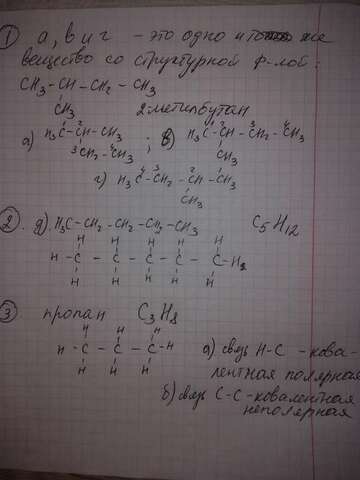 ① а, в и г - это одно и то же
вещество со структурной ф-лой:
CH3 - CH - CH2 - CH3
CH3
2 метилбутан
а) H3C - CH - CH3 ; в) H3C - CH - CH2 - CH3
CH2 - CH3
CH3
г) H3C - CH2 - CH - CH3
CH3
② д) H3C - CH2 - CH2 - CH2 - CH3 C5H12
H H H H H
H - C - C - C - C - C - H
H H H H H
③ пропан C3H8
H H H
H - C - C - C - H
H H H
а) связь H-C - кова-
лентная полярная
б) связь C-C - ковалентная
неполярная